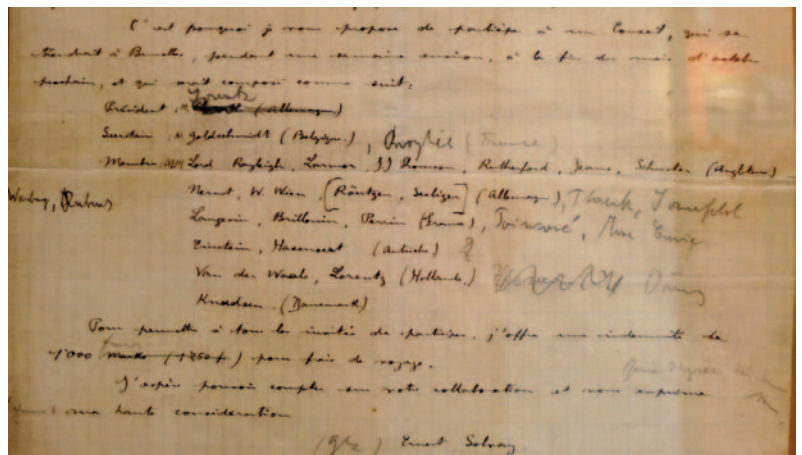 C'est pourquoi je vous propose de participer à un Conseil, qui se
tiendrait à Bruxelles, pendant une semaine environ, à la fin du mois d'octobre
prochain, et qui serait composé comme suit:
Lorentz
Président: M (Allemagne)
Secrétaire: M Goldschmidt (Belgique), Broglie (France)
Membres: MM Lord Rayleigh, Larmor, JJ Thomson, Rutherford, Jeans, Schuster (Angleterre)
Warburg, Rubens
Nernst, W. Wien, [Röntgen, Seeliger] (Allemagne), Planck, Sommerfeld
Langevin, Brillouin, Perrin (France), Poincaré, Mme Curie
Einstein, Hasenoerl (Autriche)
Van der Waals, Lorentz (Hollande)
Knudsen (Danemark)
Pour permettre à tous les invités de participer, j'offre une indemnité de
francs
1000 Marks (1250 fr) pour frais de voyage.
J'espère pouvoir compter sur votre collaboration et vous exprime
ma haute considération
Ernest Solvay.